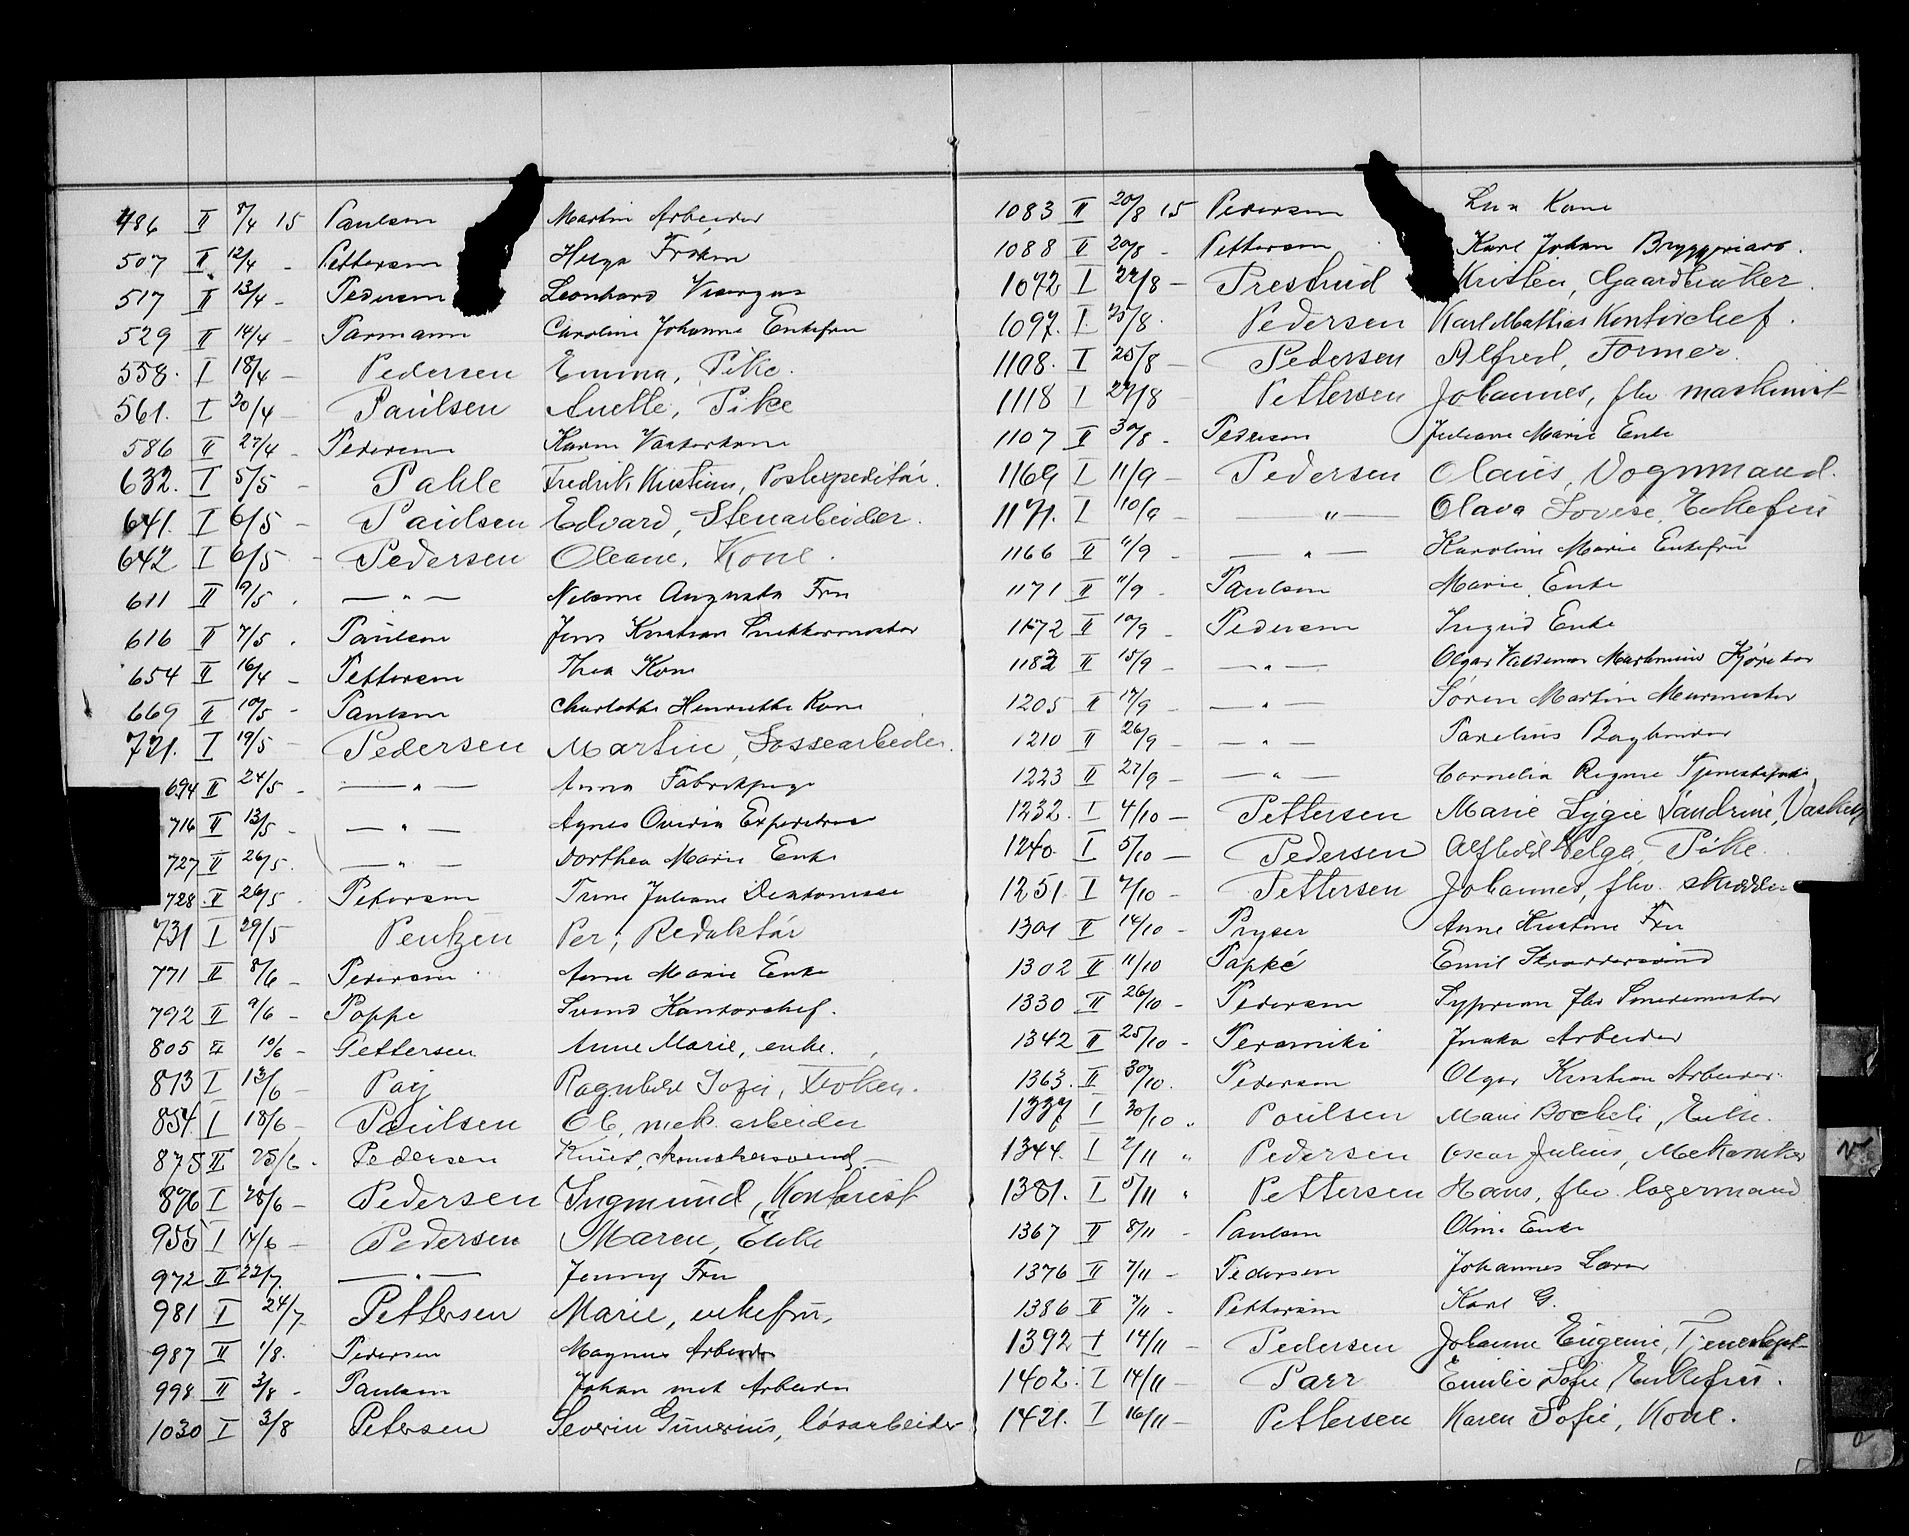 486 II 8/4 15 Paulsen Martin Arbeider
507 II 12/4 - Pettersen Helga Frøken
517 II 13/4 - Pedersen Leonhard
529 II 14/4 - Parmann Caroline Johanne Enkefru
558. I 18/4 - Pedersen Emma, Pike.
561. I 20/4 - Paulsen Anette, Pike
586 II 27/4 - Pedersen Karen Vaskerkone
632. I 5/5 - Pahle Fredrik Kristian, Postexpeditør.
641. I 6/5 - Paulsen Edvard, Stenarbeider.
642 I 6/5 - Pedersen Oleane, Kone.
611 II 9/5 . — " — Nilsine Augusta Fru
616 II 7/5 . Paulsen Jens Kristian Snekkermester
654 II 16/4 - Pettersen Thea Kone
669 II 10/5 - Paulsen Charlotte Henriette Kone
721. I 19/5 - Pedersen Martin, Lossearbeider.
694 II 24/5 - — " — Anna Fabrikpige
716 II 13/5 - — " — Agnes Ovidia Expeditrise
727 II 26/5. — " — Dorthea Marie Enke
728 II 26/5 . Petersen Trine Juliane Diakonisse
731 I 29/5 Pentzen Per, Redaktør
771 II 8/6 - Pedersen Anne Marie Enke
792 II 9/6 - Poppe Svend Kontorchef.
805 II 10/6 - Pettersen Anne Marie, enke.
813 I 13/6 Pay Ragnhild Sofie, Frøken.
854. I 18/6 - Paulsen Ol, mek. arbeider
875 II 25/6 . Pedersen Knut, skomakersvend
876 I 28/6 - Pedersen Ingmund, Kontorist
955 I 14/6 - Pedersen Maren, Enke
972 II 22/7 — " — Jenny Fru
981 I 24/7 Pettersen Marie, enkefru,
987 II 1/8. Pedersen Magnus Arbeider
998 II 3/8 - Paulsen Johan mek Arbeider
1030 I 3/8 Petersen Severin Gunerius, løsarbeider
1083 II 20/8 15 Pedersen Kone
1088 II 20/8 - Pettersen Karl Johan
1072 I 22/8 - Prestrud Kristen, Gaardbruker.
1097. I. 25/8. Pedersen Karl Mathias Kontorchef.
1108. I 25/8 - Pedersen Alfred, Former.
1118 I 27/8 - Pettersen Johannes, fhv. maskinist
1107 II 30/8 - Pedersen Juliane Marie Enke
1169 I 11/9 - Pedersen Olaus, Vognmand.
1171. I 10/9 — " — Olava Lovise, Enkefru
1166 II 11/9 - — " — Karoline Marie Enkefru
1171 II 11/9 - Paulsen Marie Enke
1172 II 10/9 - Pedersen Ingrid Enke
1182 II 15/9 - — " — Olgar Valdemar Martinius
1205 II 17/9 - — " — Søren Martin Murmester
1210 II 26/9 - — " — Parelius Bogbinder
1223 II 27/9 - — " — Cornelia Regine Tjenestepike
1232. I 4/10 - Pettersen Marie Lygie Sandrine,
1240. I 5/10 - Pedersen Alfhild Helga, Pike.
1251. I 7/10 - Pettersen Johannes, fhv. skrædder
1301 II 14/10 - Pryser Anne Kristine Fru
1302 II 11/10 Pappé Emil Skræddersvend
1330 II 26/10 - Pedersen Syprian fhv Smedemester
1342 II 25/10 - Peramiki Arbeider
1363. II 30/10. Pedersen Olgar Kristian Arbeider.
1337 I 30/10 " Poulsen Marie Bocheli, Enke.
1344. I 2/11 " Pedersen Oscar Julius, Mekaniker
1381. I 5/11 " Pettersen Hans, fhv. lagermand
1367 II 8/11 - Paulsen Oline Enke
1376 II 7/11 - Pedersen Johannes Lærer
1386 II 7/11 - Pettersen Karl G.
1392 I 14/11 - Pedersen Johanne Eugenie,
1402. I 14/11 - Parr Emilie Sofie, Enkefru.
1421. I 16/11 - Pettersen Karen Sofie, Kone.